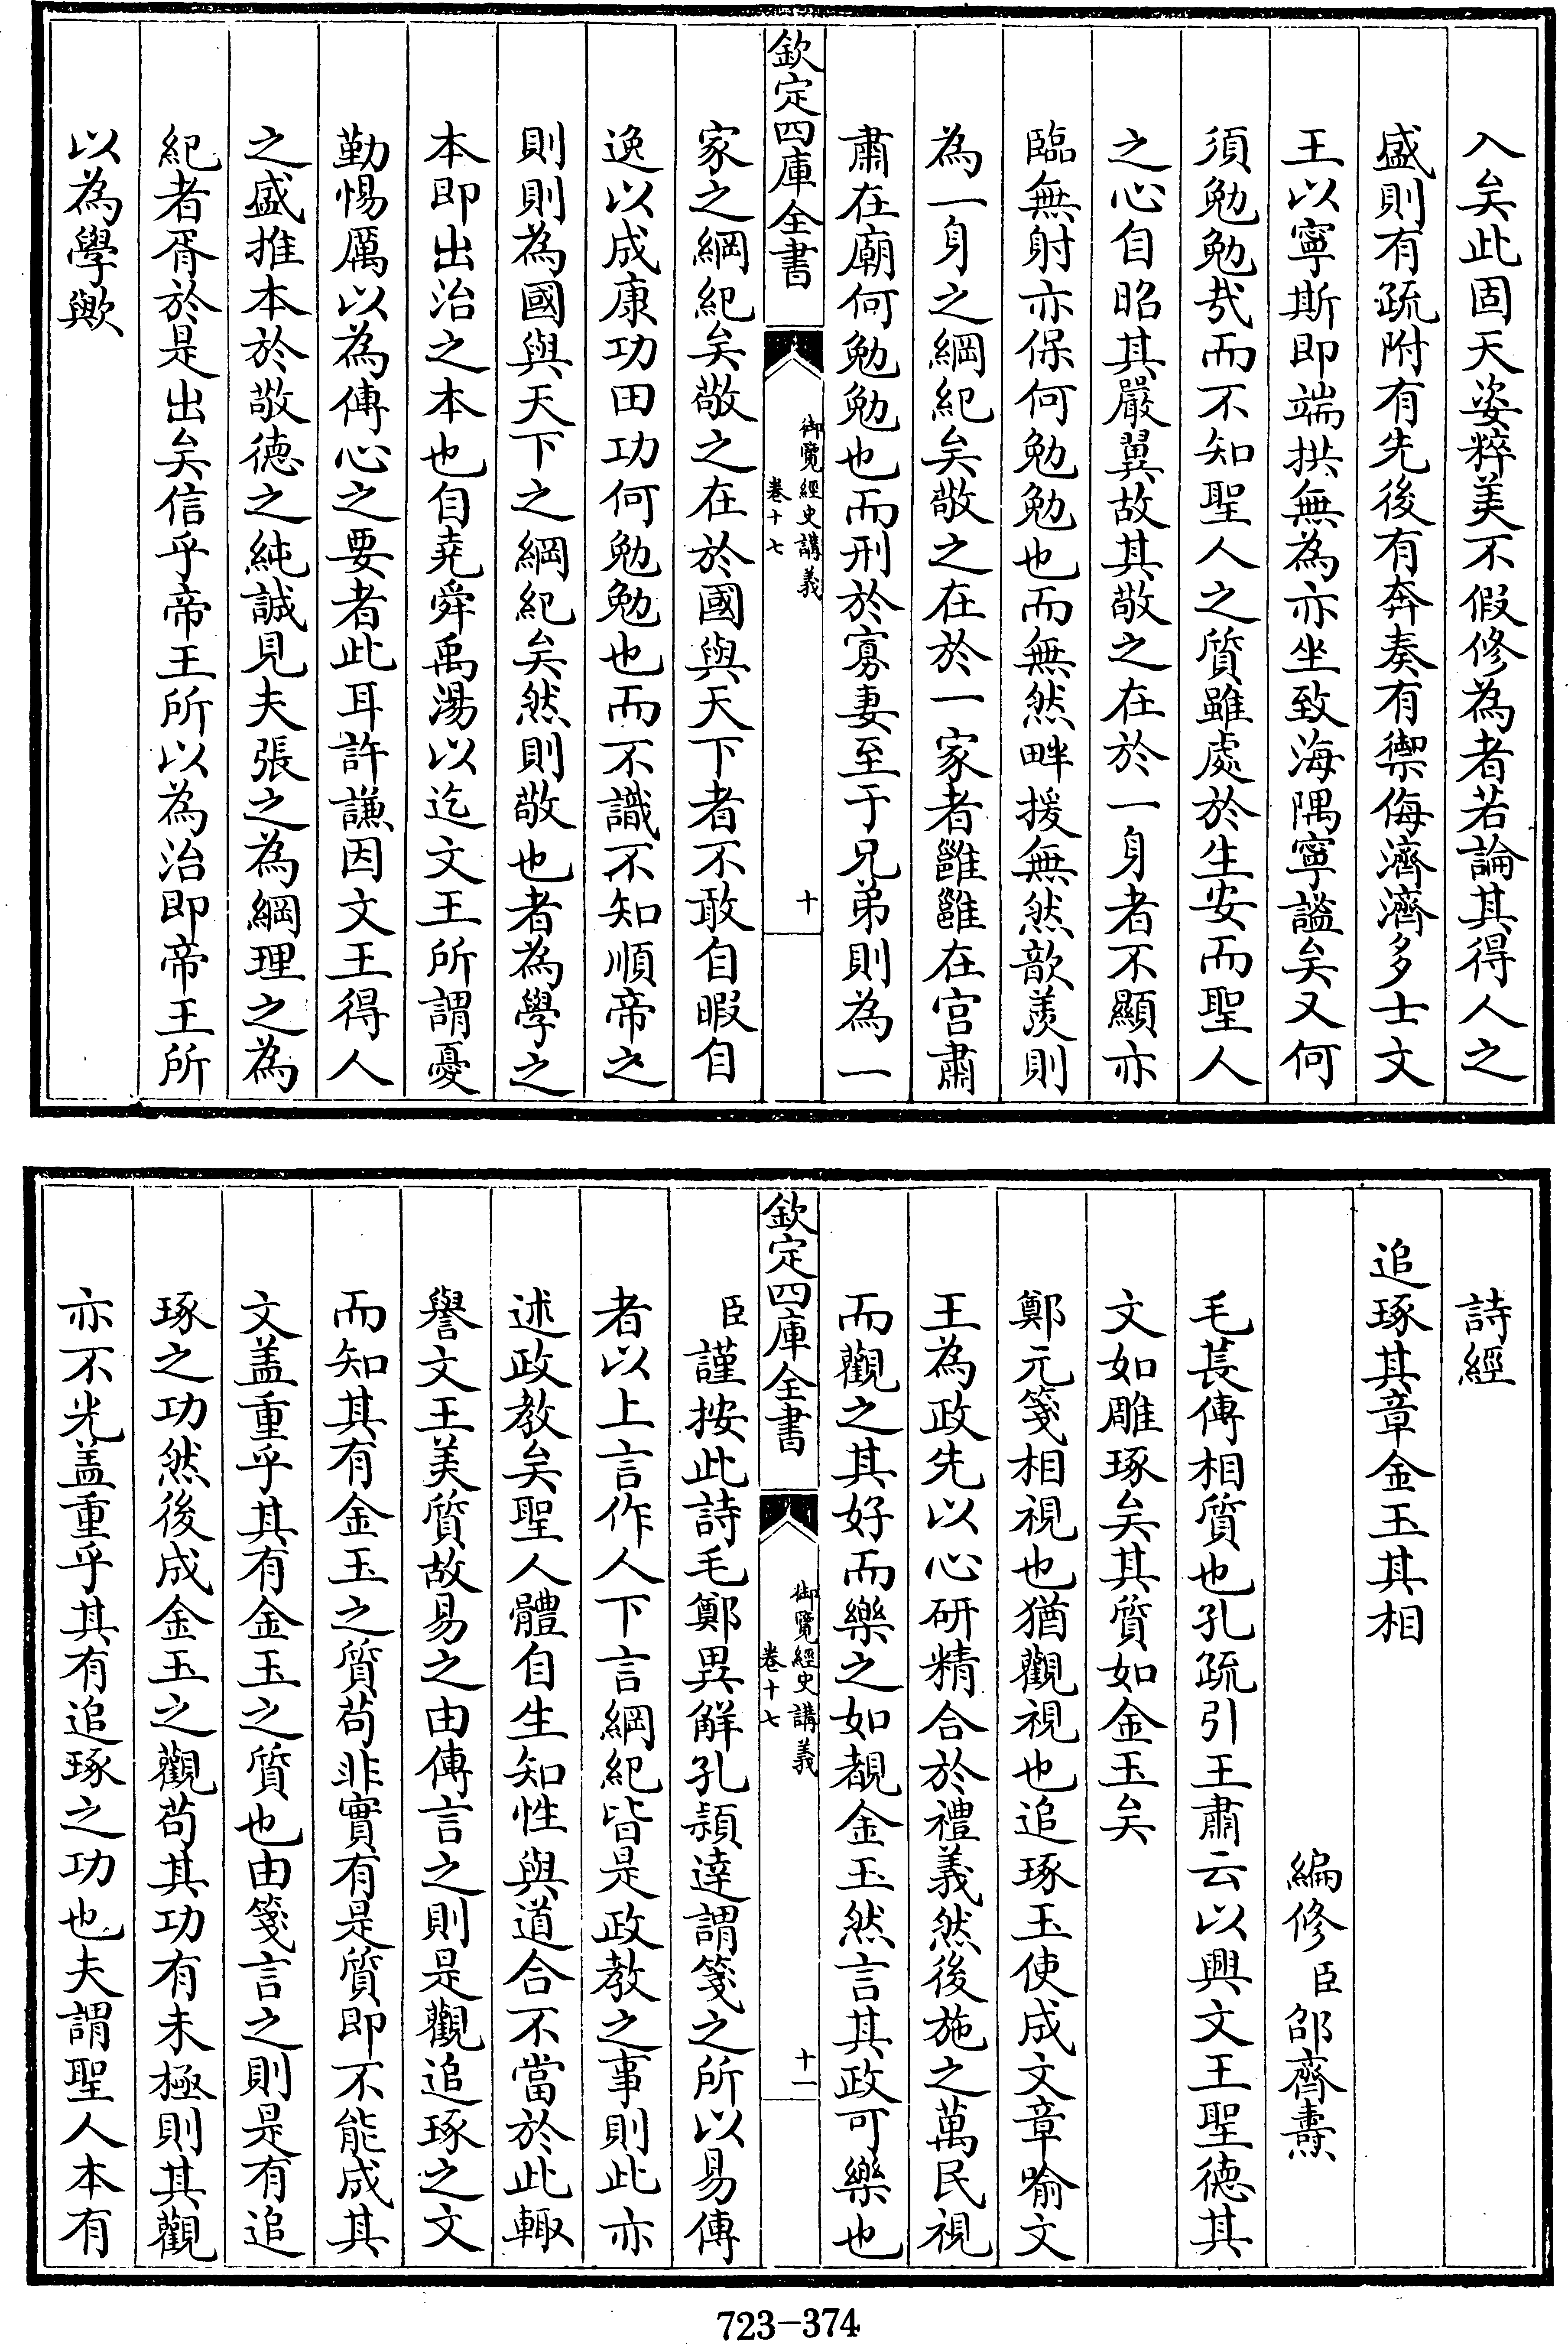 入矣此固天姿粹美不假修為者若論其得人之
盛則有疏附有先後有奔奏有禦侮濟濟多士文
王以寧斯即端拱無為亦坐致海隅寧謐矣又何
須勉勉哉而不知聖人之質雖處於生安而聖人
之心自昭其嚴翼故其敬之在於一身者不顯亦
臨無射亦保何勉勉也而無然畔援無然歆羨則
為一身之綱紀矣敬之在於一家者雝雝在宫肅
肅在廟何勉勉也而刑於寡妻至于兄弟則為一
欽定四庫全書
御覽經史講義
卷十七
十
家之綱紀矣敬之在於國與天下者不敢自暇自
逸以成康功田功何勉勉也而不識不知順帝之
則則為國與天下之綱紀矣然則敬也者為學之
本即出治之本也自堯舜禹湯以迄文王所謂憂
勤惕厲以為傳心之要者此耳許謙因文王得人
之盛推本於敬德之純誠見夫張之為綱理之為
紀者胥於是出矣信乎帝王所以為治即帝王所
以為學歟
詩經
追琢其章金玉其相
編修臣邵齊燾
毛萇傳相質也孔疏引王肅云以興文王聖德其
文如雕琢矣其質如金玉矣
鄭元箋相視也猶觀視也追琢玉使成文章喻文
王為政先以心研精合於禮義然後施之萬民視
而觀之其好而樂之如覩金玉然言其政可樂也
欽定四庫全書
御覽經史講義
卷十七
十一
臣謹按此詩毛鄭異解孔頴達謂箋之所以易傳
者以上言作人下言綱紀皆是政教之事則此亦
述政教矣聖人體自生知性與道合不當於此輙
譽文王美質故易之由傳言之則是觀追琢之文
而知其有金玉之質苟非實有是質即不能成其
文盖重乎其有金玉之質也由箋言之則是有追
琢之功然後成金玉之觀苟其功有未極則其觀
亦不光盖重乎其有追琢之功也夫謂聖人本有
723-374